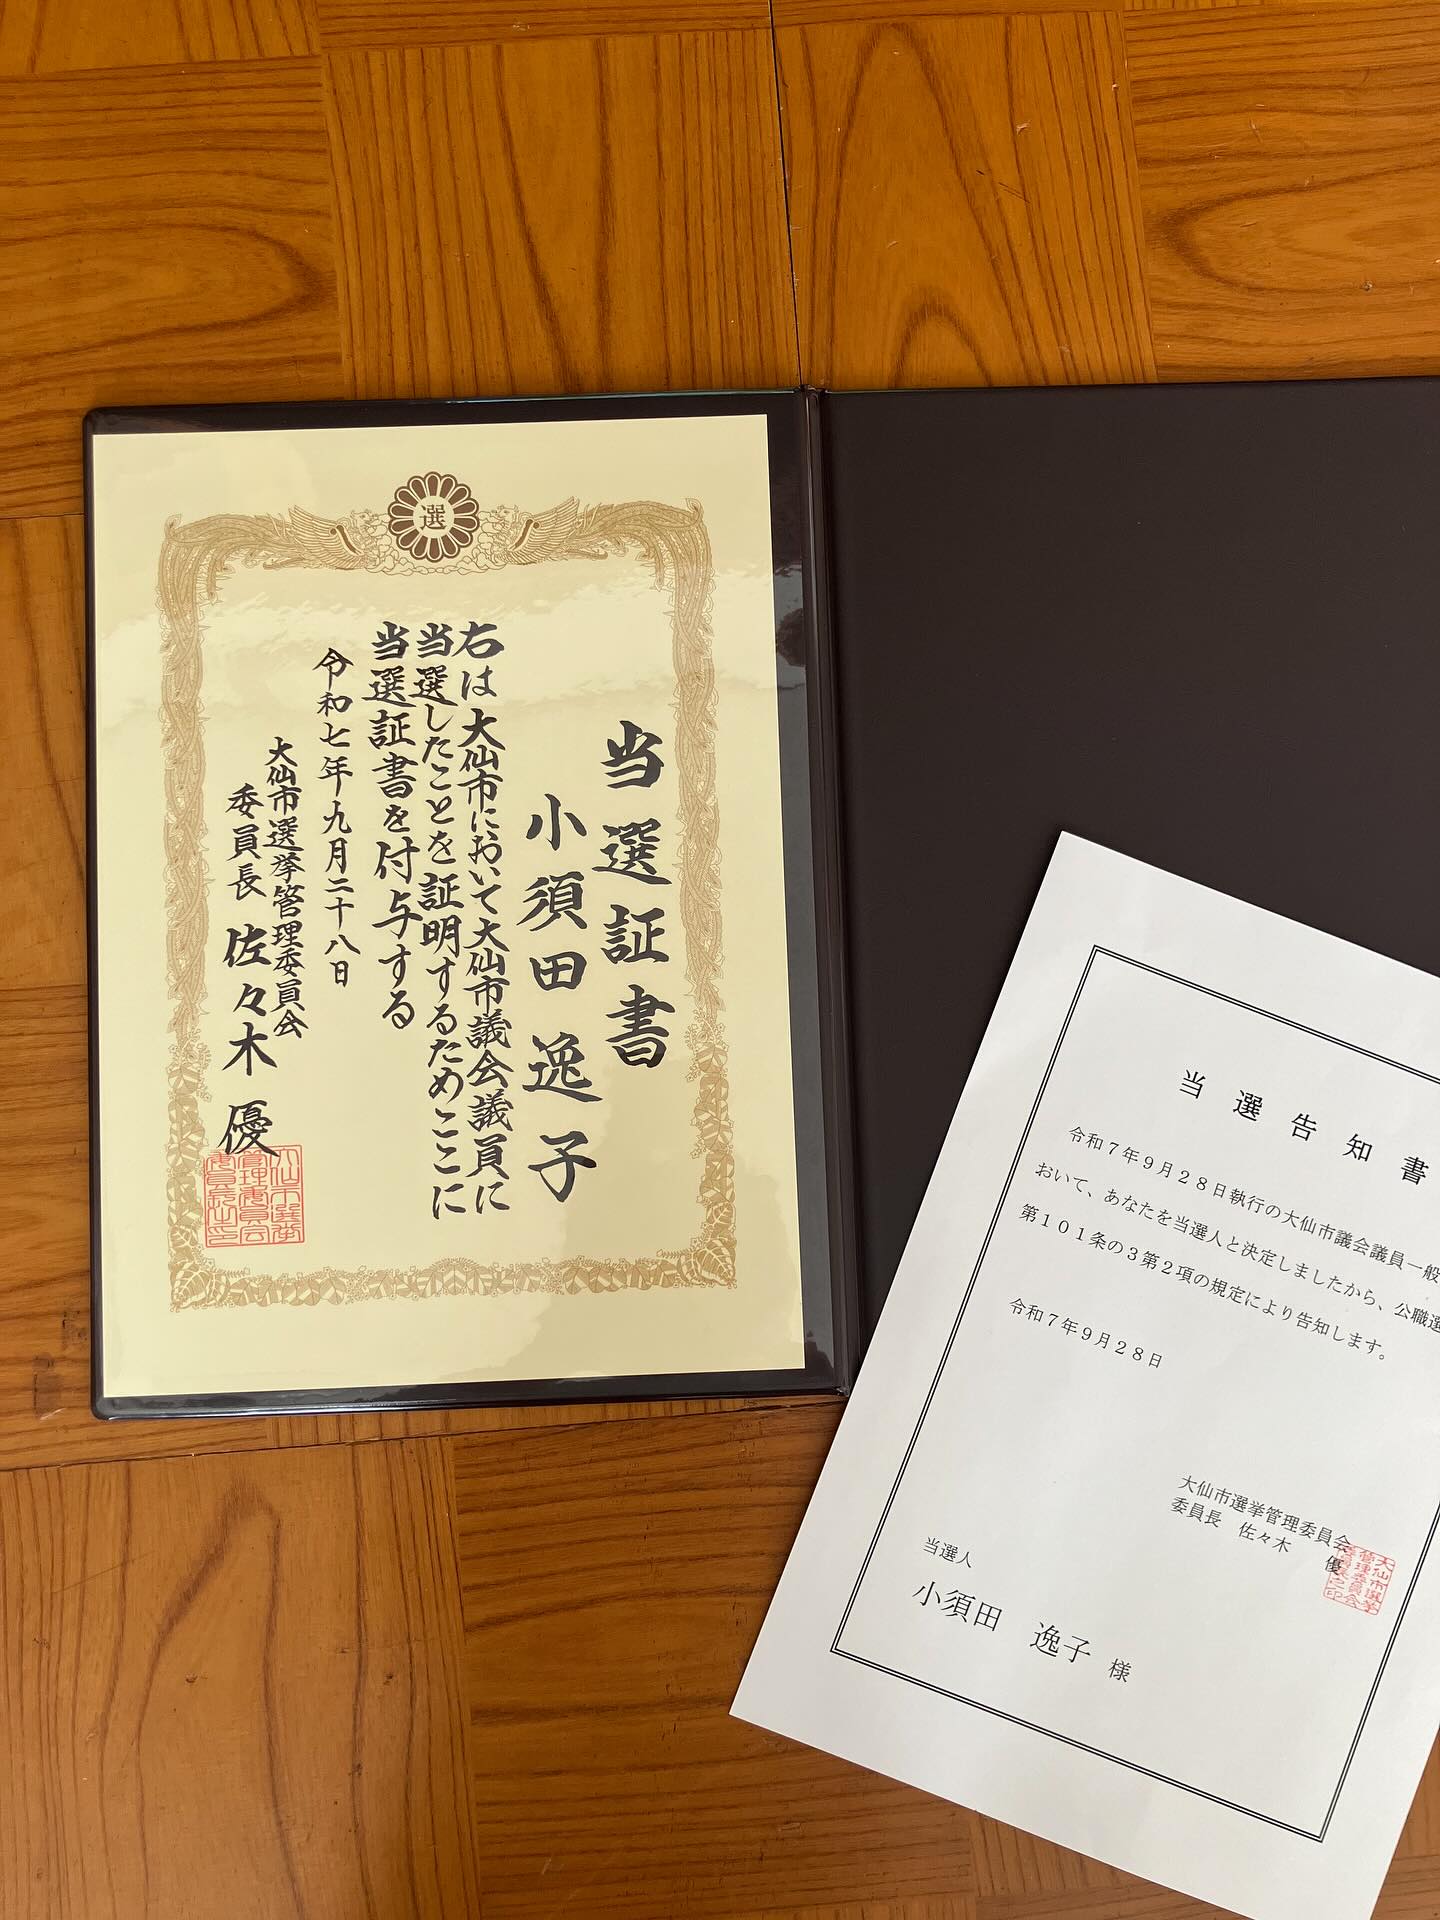 選
当選証書
小須田逸子
右は大仙市において大仙市議会議員に
当選したことを証明するためここに
当選証書を付与する
令和七年九月二十八日
大仙市選挙管理委員会
委員長 佐々木 優
大仙市選挙
管理委員会
委員長之印
当選告知書
令和7年9月28日執行の大仙市議会議員一般
おいて、あなたを当選人と決定しましたから、公職選
第101条の3第2項の規定により告知します。
令和7年9月28日
大仙市選挙管理委員会
委員長 佐々木 優
大仙市選挙
管理委員会
委員長之印
当選人
小須田 逸子 様